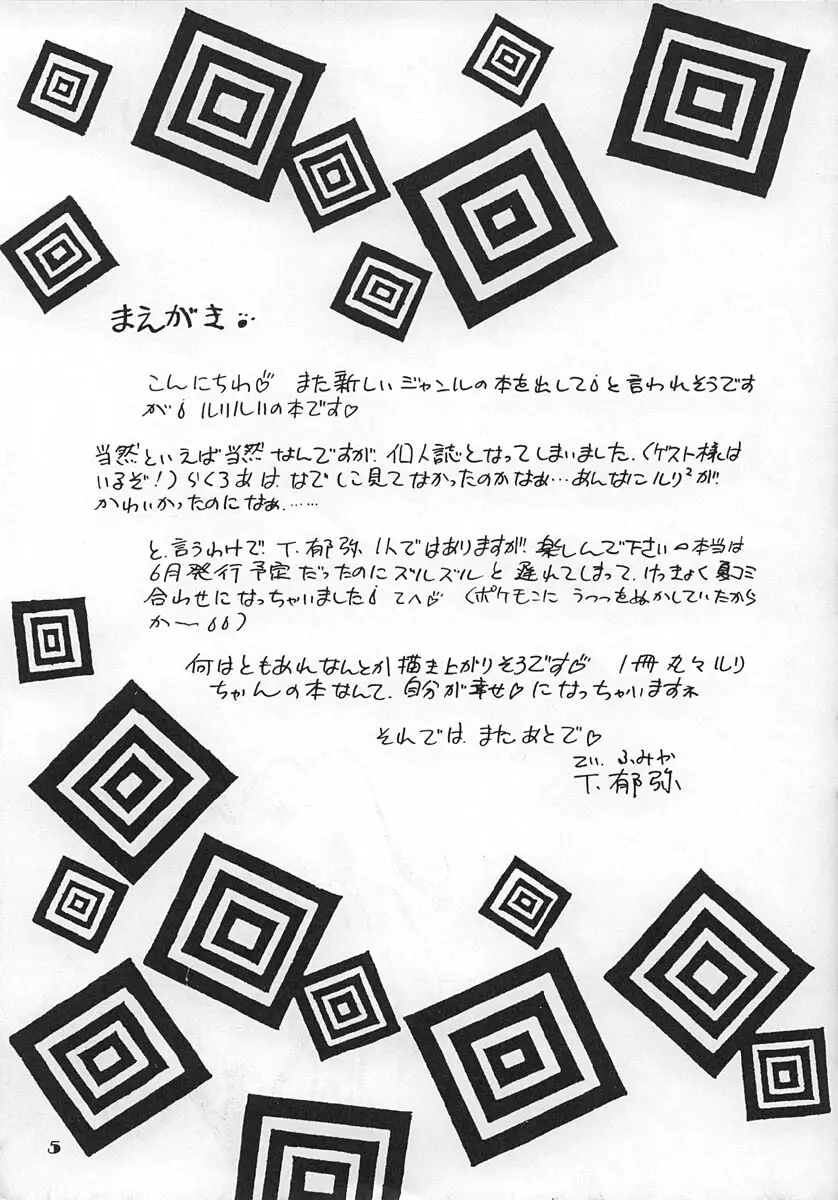 まえがき
こんにちわ♡ また新しいジャンルの本を出して!と言われそうです
が! ルリルリの本です♡
当然といえば当然なんですが、個人誌となってしまいました.(ゲスト様は
いるぞ!)らくろあは、なでしこ見てなかったのかなぁ…あんなにルリ²が
かわいかったのになぁ.……
と、言うわけで、T.郁弥 1人ではありますが、楽しんで下さい 本当は
6月発行予定だったのにズルズルと遅れてしまって、けっきょく夏コミ
合わせになっちゃいました! てへ♡ (ポケモンに うつつをぬかしていたから
か〜)
何はともあれなんとか描き上がりそうです♡ 1冊丸々ルリ
ちゃんの本なんて、自分が幸せ♡になっちゃいますネ
それでは、またあとで♡
てぃ. ふみや
T.郁弥
5